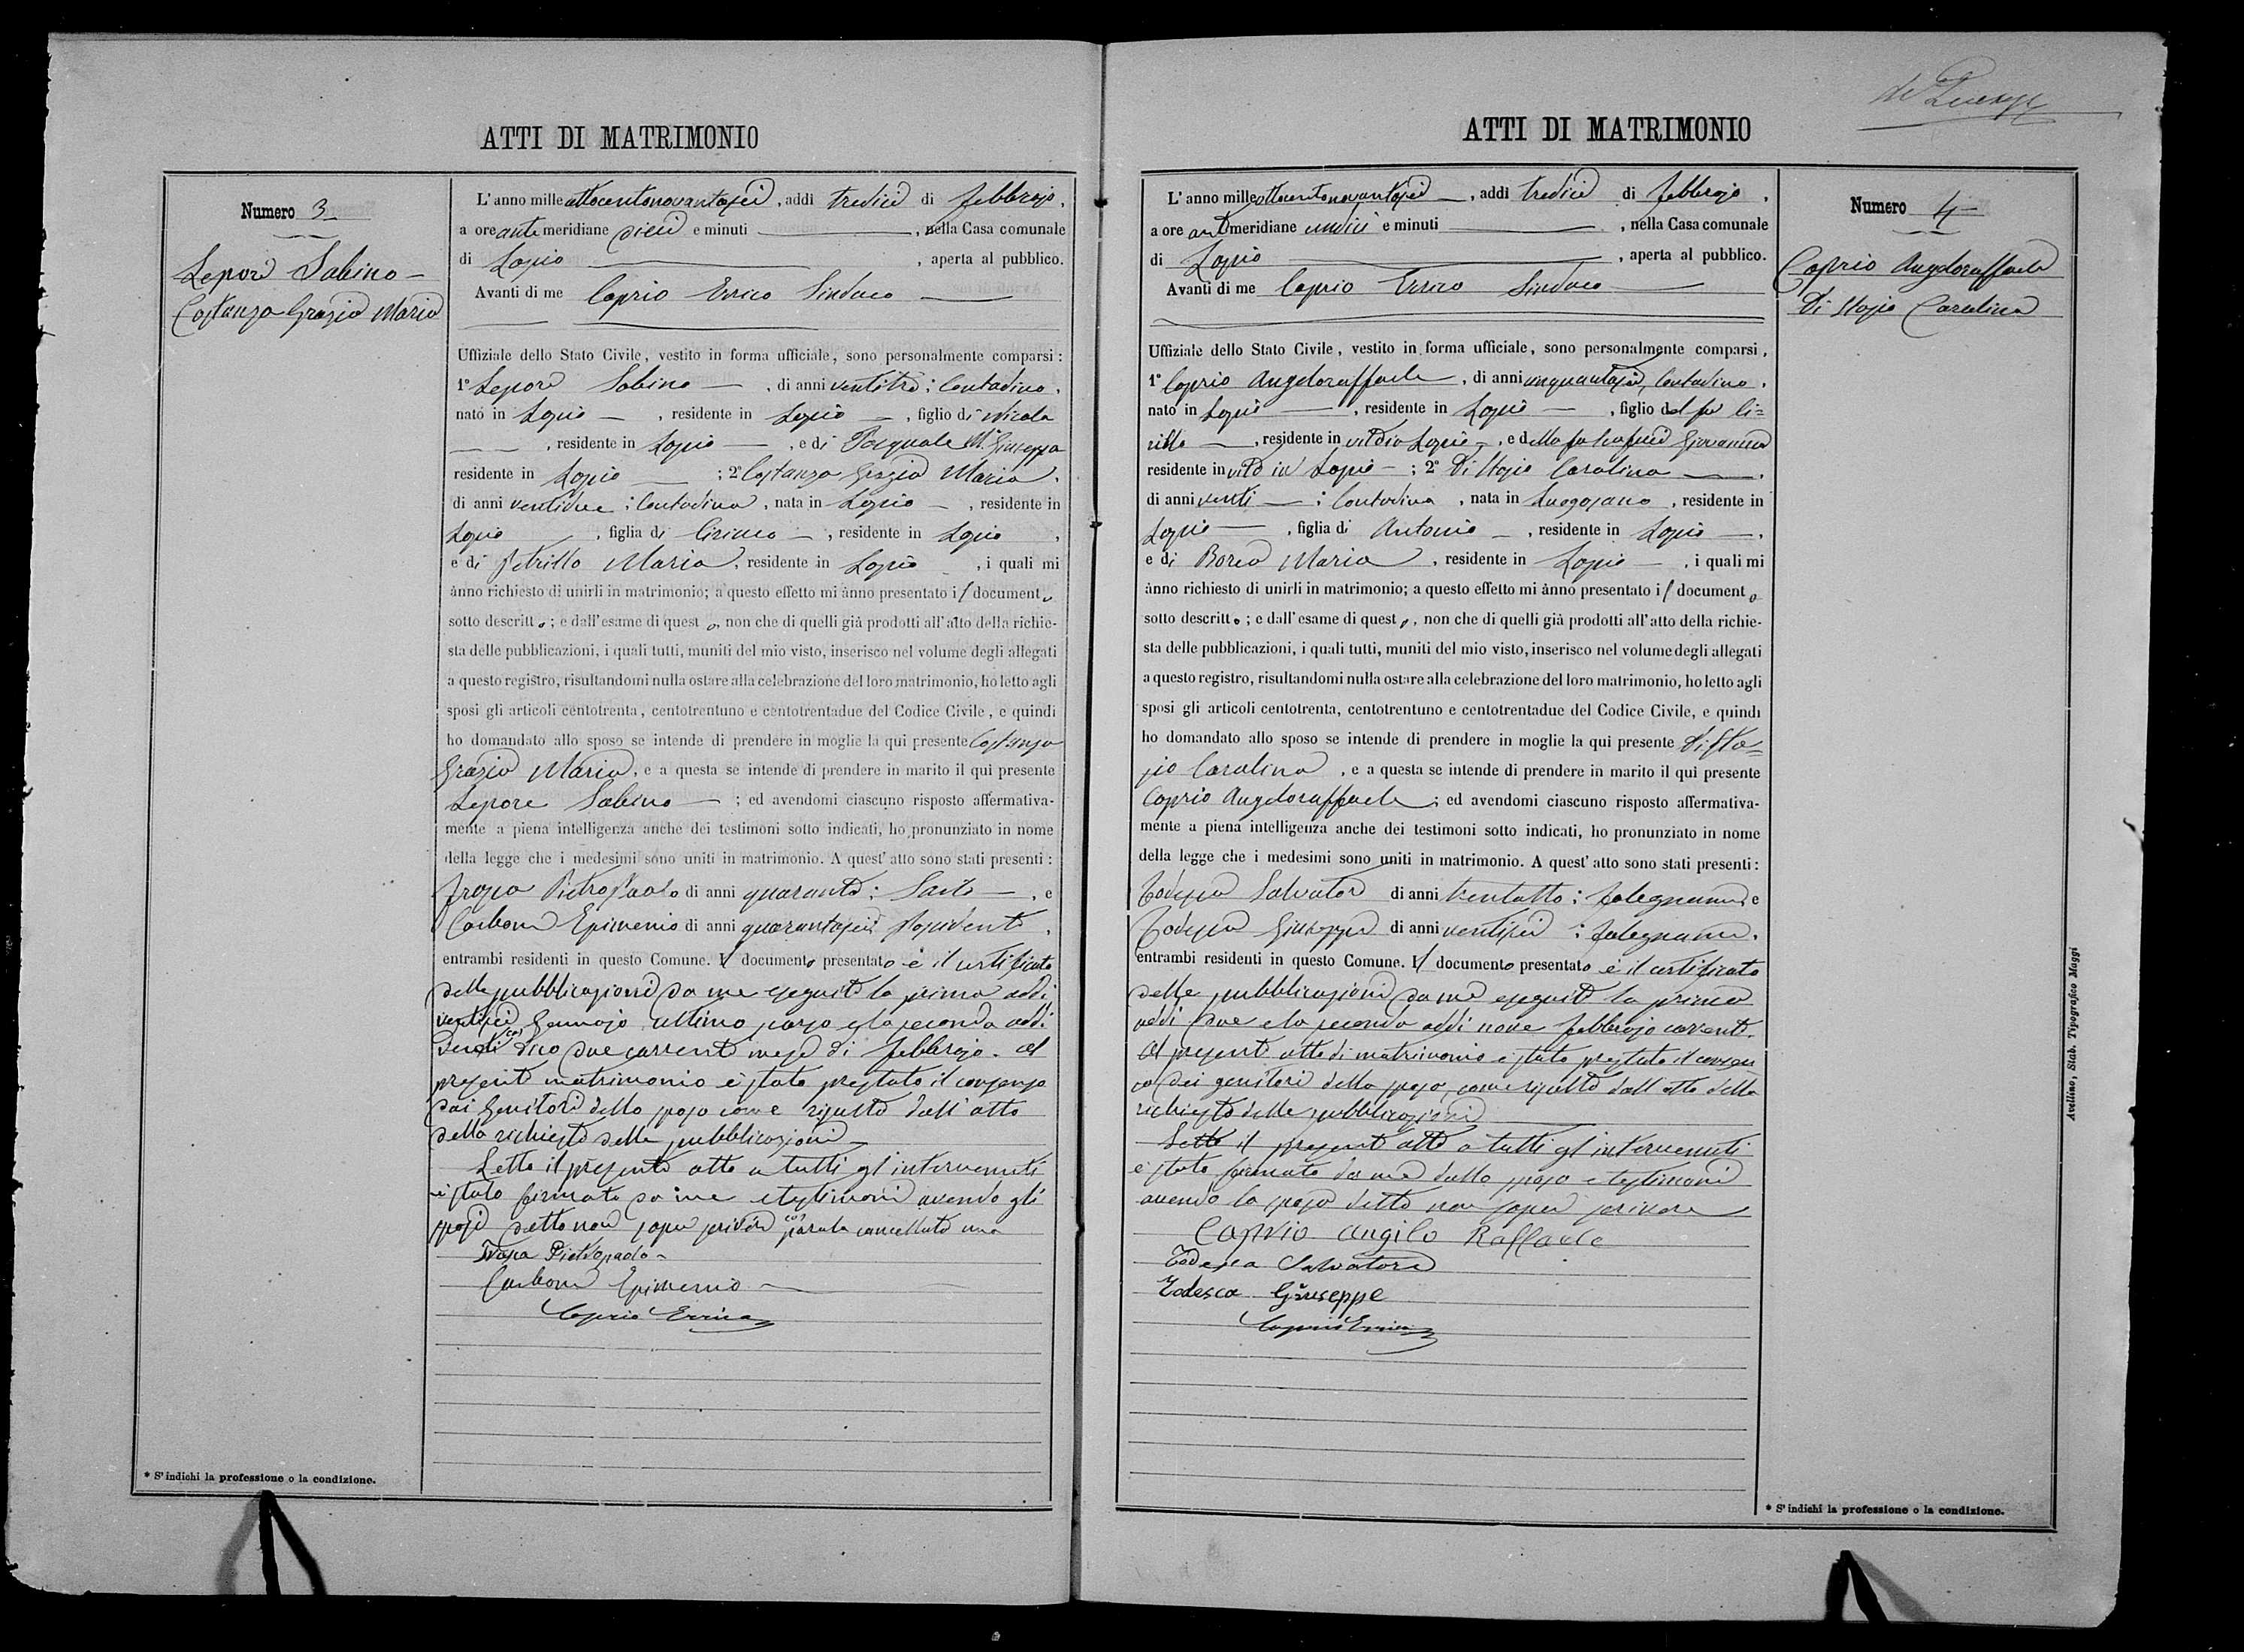 ATTI DI MATRIMONIO
Numero 3
Lepore Sabino
Costanza Grazia Maria
L'anno mille ottocentonovantasei, addi tredici di febbrajo,
a ore ante meridiane dieci e minuti , nella Casa comunale
di Lapio , aperta al pubblico.
Avanti di me Caprio Errico Sindaco
Uffiziale dello Stato Civile, vestito in forma ufficiale, sono personalmente comparsi:
1° Lepore Sabino , di anni ventitre; Contadino,
nato in Lapio , residente in Lapio , figlio di Nicola
, residente in Lapio , e di Pasquale Ma Giuseppa
residente in Lapio ; 2° Costanza Grazia Maria,
di anni ventidue; Contadina, nata in Lapio , residente in
Lapio , figlia di Ciriaco , residente in Lapio ,
e di Petrillo Maria, residente in Lapio , i quali mi
ànno richiesto di unirli in matrimonio; a questo effetto mi ànno presentato il documento
sotto descritto; e dall'esame di questo, non che di quelli già prodotti all'atto della richie-
sta delle pubblicazioni, i quali tutti, muniti del mio visto, inserisco nel volume degli allegati
a questo registro, risultandomi nulla ostare alla celebrazione del loro matrimonio, ho letto agli
sposi gli articoli centotrenta, centotrentuno e centotrentadue del Codice Civile, e quindi
ho domandato allo sposo se intende di prendere in moglie la qui presente Costanza
Grazia Maria, e a questa se intende di prendere in marito il qui presente
Lepore Sabino ; ed avendomi ciascuno risposto affermativa-
mente a piena intelligenza anche dei testimoni sotto indicati, ho pronunziato in nome
della legge che i medesimi sono uniti in matrimonio. A quest'atto sono stati presenti:
Pietropaolo di anni quaranta; Sarto , e
Carbone Epimenio di anni quarantasei possidente,
entrambi residenti in questo Comune. Il documento presentato è il certificato
delle pubblicazioni da me eseguite la prima addi
ventisei Gennajo ultimo scorso e la seconda addi
dico due corrente mese di febbrajo. Al
presente matrimonio è stato prestato il consenso
dai Genitori dello sposo come risulta dall'atto
della richiesta delle pubblicazioni
Letto il presente atto a tutti gl'intervenuti
è stato firmato da me e testimoni avendo gli
sposi detto non saper scrivere parola cancellata una
Pietropaolo
Carbone Epimenio
Caprio Errico
* S'indichi la professione o la condizione.
ATTI DI MATRIMONIO
Numero 4
Caprio Angeloraffaele
Di Stasio Carolina
L'anno mille ottocentonovantasei , addi tredici di febbrajo,
a ore ante meridiane undici e minuti , nella Casa comunale
di Lapio , aperta al pubblico.
Avanti di me Caprio Errico Sindaco
Uffiziale dello Stato Civile, vestito in forma ufficiale, sono personalmente comparsi,
1° Caprio Angeloraffaele, di anni cinquantasei, Contadino,
nato in Lapio , residente in Lapio , figlio del fu Ci=
rillo , residente in vita in Lapio , e della fu Giovanna
residente in vita in Lapio ; 2° Di Stasio Carolina ,
di anni venti ; Contadina, nata in Luogosano, residente in
Lapio , figlia di Antonio , residente in Lapio ,
e di Maria , residente in Lapio , i quali mi
ànno richiesto di unirli in matrimonio; a questo effetto mi ànno presentato il documento
sotto descritto; e dall'esame di questo, non che di quelli già prodotti all'atto della richie-
sta delle pubblicazioni, i quali tutti, muniti del mio visto, inserisco nel volume degli allegati
a questo registro, risultandomi nulla ostare alla celebrazione del loro matrimonio, ho letto agli
sposi gli articoli centotrenta, centotrentuno e centotrentadue del Codice Civile, e quindi
ho domandato allo sposo se intende di prendere in moglie la qui presente Di Sta=
sio Carolina , e a questa se intende di prendere in marito il qui presente
Caprio Angeloraffaele; ed avendomi ciascuno risposto affermativa-
mente a piena intelligenza anche dei testimoni sotto indicati, ho pronunziato in nome
della legge che i medesimi sono uniti in matrimonio. A quest'atto sono stati presenti:
Todesca Salvatore di anni trentotto; falegname e
Todesca Giuseppe di anni ventisei; falegname,
entrambi residenti in questo Comune. Il documento presentato è il certificato
delle pubblicazioni da me eseguite la prima
addi due e la seconda addi nove febbrajo corrente.
Al presente atto di matrimonio è stato prestato il consen
so dei genitori della sposa, come risulta dall'atto della
richiesta delle pubblicazioni
Letto il presente atto a tutti gl'intervenuti
è stato firmato da me dallo sposo e testimoni
avendo la sposa detto non saper scrivere
Caprio Angilo Raffaele
Todesca Salvatore
Todesca Giuseppe
Caprio Errico
* S'indichi la professione o la condizione.
Avellino, Stab. Tipografico Maggi